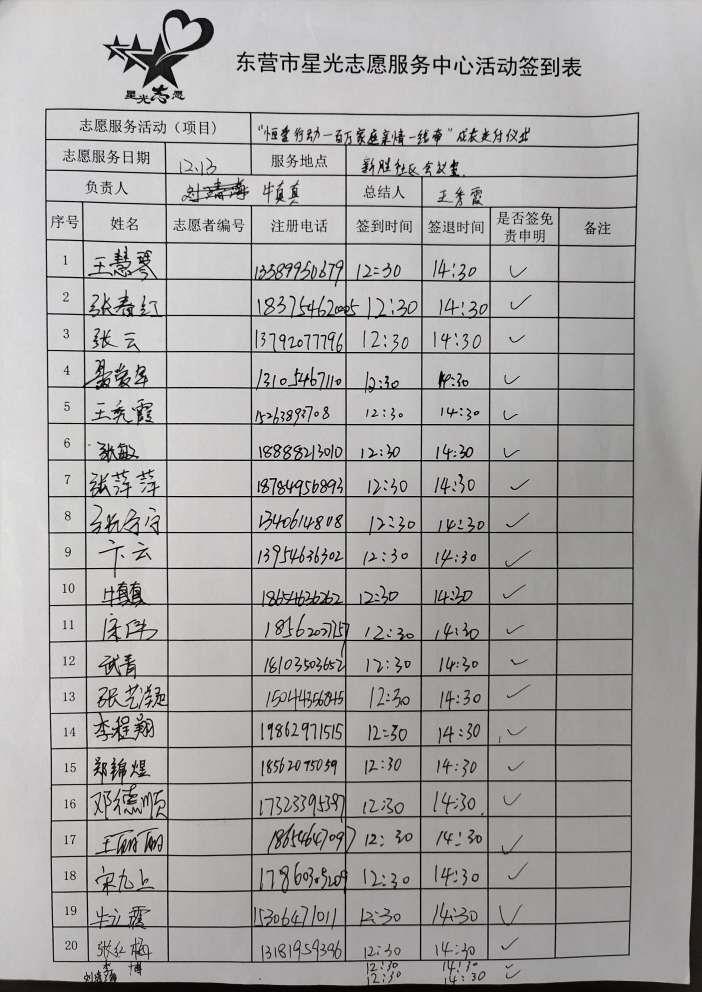 星光志愿
东营市星光志愿服务中心活动签到表
志愿服务活动（项目） "恒爱行动一百万家庭亲情一线牵" 仪式
志愿服务日期 12.13 服务地点 新胜社区会议室
负责人 牛真真 总结人 王秀霞
序号 姓名 志愿者编号 注册电话 签到时间 签退时间 是否签免责申明 备注
1 王慧琴 13589950679 12:30 14:30 ✓
2 张春红 18375462005 12:30 14:30 ✓
3 张云 13792077796 12:30 14:30 ✓
4 13105467110 12:30 14:30 ✓
5 王秀霞 15263893708 12:30 14:30 ✓
6 张敏 18888213010 12:30 14:30 ✓
7 张萍萍 18784956893 12:30 14:30 ✓
8 12:30 14:30 ✓
9 卞云 13954636302 12:30 14:30 ✓
10 牛真真 18654636262 12:30 14:30 ✓
11 12:30 14:30 ✓
12 武青 18103503652 12:30 14:30 ✓
13 12:30 14:30 ✓
14 李程翔 19862971515 12:30 14:30 ✓
15 郑锦煜 18562095039 12:30 14:30 ✓
16 邓德顺 17323395387 12:30 14:30 ✓
17 王丽丽 18654647097 12:30 14:30 ✓
18 宋九上 12:30 14:30 ✓
19 牛立霞 15306471011 12:30 14:30 ✓
20 张红梅 13181959396 12:30 14:30 ✓
李博 12:30 14:30 ✓
12:30 14:30 ✓